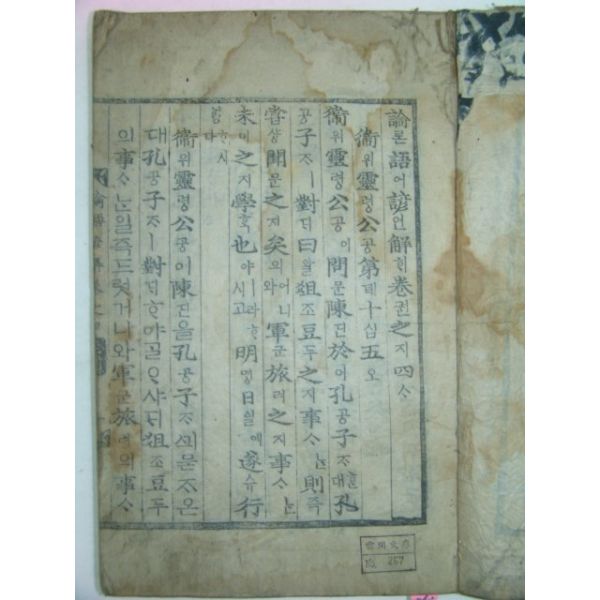 論론語어諺언解ᄒᆡ卷권之지四ᄉᆞ
衛위靈령公공第뎨十십五오
衛위靈령公공이問문陳딘於어孔공子ᄌᆞ대ᄒᆞᆫ孔
공子ᄌᆞㅣ對ᄃᆡ曰왈俎조豆두之지事ᄉᆞᄂᆞᆫ則즉
嘗샹聞문之지矣의어니와軍군旅려之지事ᄉᆞᄂᆞᆫ
未미之지學ᄒᆞᆨ也야ㅣ라ᄒᆞ시고明명日일에遂슈行
ᄒᆡᆼᄒᆞ시다
衛위靈령公공이陳딘을孔공子ᄌᆞᄭᅴ묻ᄌᆞ온
대孔공子ᄌᆞㅣ對ᄃᆡᄒᆞ야ᄀᆞᆯᄋᆞ샤ᄃᆡ俎조豆두
의事ᄉᆞᄂᆞᆫ일즉드럿거니와軍군旅려의事ᄉᆞ
267